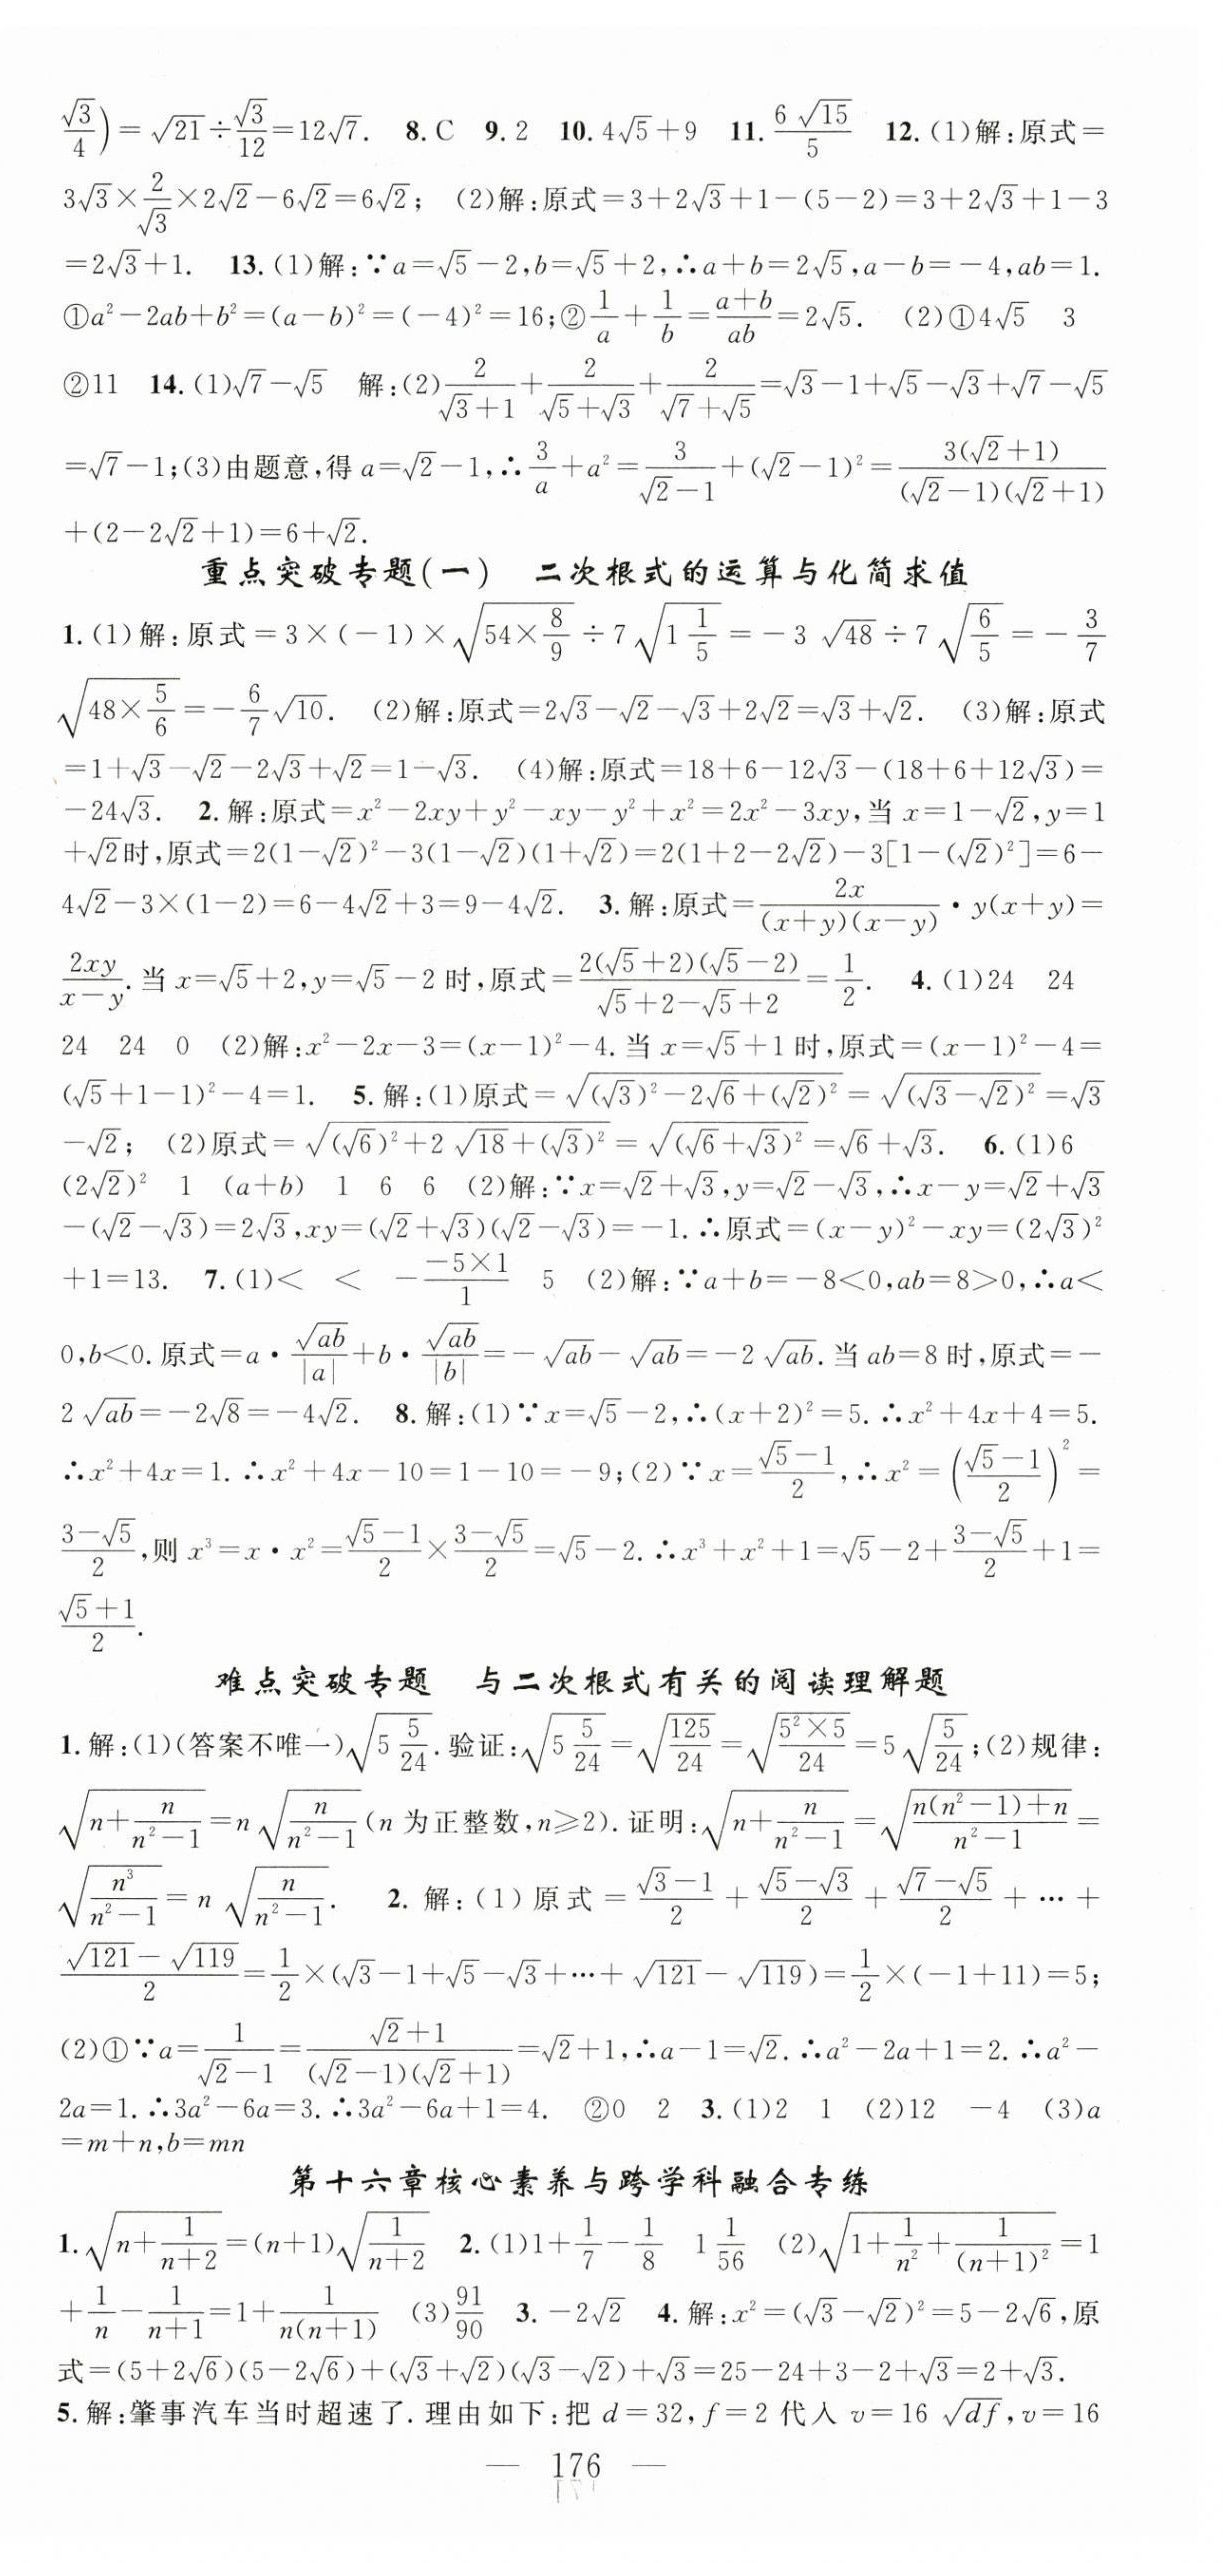 √3/4)=√21÷√3/12=12√7. 8.C 9.2 10.4√5+9 11.6√15/5 12.(1)解:原式=
3√3×2/√3×2√2-6√2=6√2; (2)解:原式=3+2√3+1-(5-2)=3+2√3+1-3
=2√3+1. 13.(1)解:∵a=√5-2,b=√5+2,∴a+b=2√5,a-b=-4,ab=1.
①a²-2ab+b²=(a-b)²=(-4)²=16;②1/a+1/b=(a+b)/ab=2√5. (2)①4√5 3
②11 14.(1)√7-√5 解:(2)2/(√3+1)+2/(√5+√3)+2/(√7+√5)=√3-1+√5-√3+√7-√5
=√7-1;(3)由题意,得a=√2-1,∴3/a+a²=3/(√2-1)+(√2-1)²=3(√2+1)/((√2-1)(√2+1))
+(2-2√2+1)=6+√2.
重点突破专题(一) 二次根式的运算与化简求值
1.(1)解:原式=3×(-1)×√(54×8/9)÷7√(1 1/5)=-3√48÷7√(6/5)=-3/7
√(48×5/6)=-6/7√10. (2)解:原式=2√3-√2-√3+2√2=√3+√2. (3)解:原式
=1+√3-√2-2√3+√2=1-√3. (4)解:原式=18+6-12√3-(18+6+12√3)=
-24√3. 2.解:原式=x²-2xy+y²-xy-y²+x²=2x²-3xy,当x=1-√2,y=1
+√2时,原式=2(1-√2)²-3(1-√2)(1+√2)=2(1+2-2√2)-3[1-(√2)²]=6-
4√2-3×(1-2)=6-4√2+3=9-4√2. 3.解:原式=2x/((x+y)(x-y))·y(x+y)=
2xy/(x-y).当x=√5+2,y=√5-2时,原式=2(√5+2)(√5-2)/(√5+2-√5+2)=1/2. 4.(1)24 24
24 24 0 (2)解:x²-2x-3=(x-1)²-4.当x=√5+1时,原式=(x-1)²-4=
(√5+1-1)²-4=1. 5.解:(1)原式=√((√3)²-2√6+(√2)²)=√((√3-√2)²)=√3
-√2; (2)原式=√((√6)²+2√18+(√3)²)=√((√6+√3)²)=√6+√3. 6.(1)6
(2√2)² 1 (a+b) 1 6 6 (2)解:∵x=√2+√3,y=√2-√3,∴x-y=√2+√3
-(√2-√3)=2√3,xy=(√2+√3)(√2-√3)=-1.∴原式=(x-y)²-xy=(2√3)²
+1=13. 7.(1)< < -(-5×1)/1 5 (2)解:∵a+b=-8<0,ab=8>0,∴a<
0,b<0.原式=a·√ab/|a|+b·√ab/|b|=-√ab-√ab=-2√ab.当ab=8时,原式=-
2√ab=-2√8=-4√2. 8.解:(1)∵x=√5-2,∴(x+2)²=5.∴x²+4x+4=5.
∴x²+4x=1.∴x²+4x-10=1-10=-9;(2)∵x=(√5-1)/2,∴x²=((√5-1)/2)²=
(3-√5)/2,则x³=x·x²=(√5-1)/2×(3-√5)/2=√5-2.∴x³+x²+1=√5-2+(3-√5)/2+1=
(√5+1)/2.
难点突破专题 与二次根式有关的阅读理解题
1.解:(1)(答案不唯一)√(5 5/24).验证:√(5 5/24)=√(125/24)=√(5²×5/24)=5√(5/24);(2)规律:
√(n+n/(n²-1))=n√(n/(n²-1))(n为正整数,n≥2).证明:√(n+n/(n²-1))=√((n(n²-1)+n)/(n²-1))=
√(n³/(n²-1))=n√(n/(n²-1)). 2.解:(1)原式=(√3-1)/2+(√5-√3)/2+(√7-√5)/2+…+
(√121-√119)/2=1/2×(√3-1+√5-√3+…+√121-√119)=1/2×(-1+11)=5;
(2)①∵a=1/(√2-1)=(√2+1)/((√2-1)(√2+1))=√2+1,∴a-1=√2.∴a²-2a+1=2.∴a²-
2a=1.∴3a²-6a=3.∴3a²-6a+1=4. ②0 2 3.(1)2 1 (2)12 -4 (3)a
=m+n,b=mn
第十六章核心素养与跨学科融合专练
1.√(n+1/(n+2))=(n+1)√(1/(n+2)) 2.(1)1+1/7-1/8 1 1/56 (2)√(1+1/n²+1/(n+1)²)=1
+1/n-1/(n+1)=1+1/(n(n+1)) (3)91/90 3.-2√2 4.解:x²=(√3-√2)²=5-2√6,原
式=(5+2√6)(5-2√6)+(√3+√2)(√3-√2)+√3=25-24+3-2+√3=2+√3.
5.解:肇事汽车当时超速了.理由如下:把d=32,f=2代入v=16√df,v=16
— 176 —